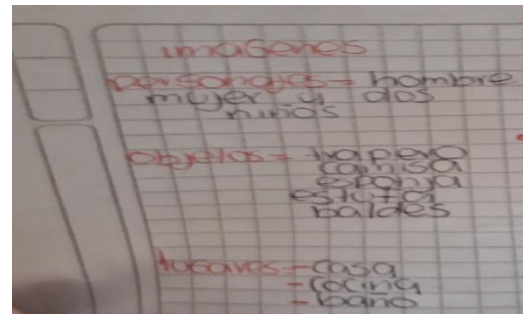 imagenes
personajes = hombre
mujer y dos
niños
objetos = trapero
camisa
esponja
estufa
baldes
lugares - casa
- cocina
- baño